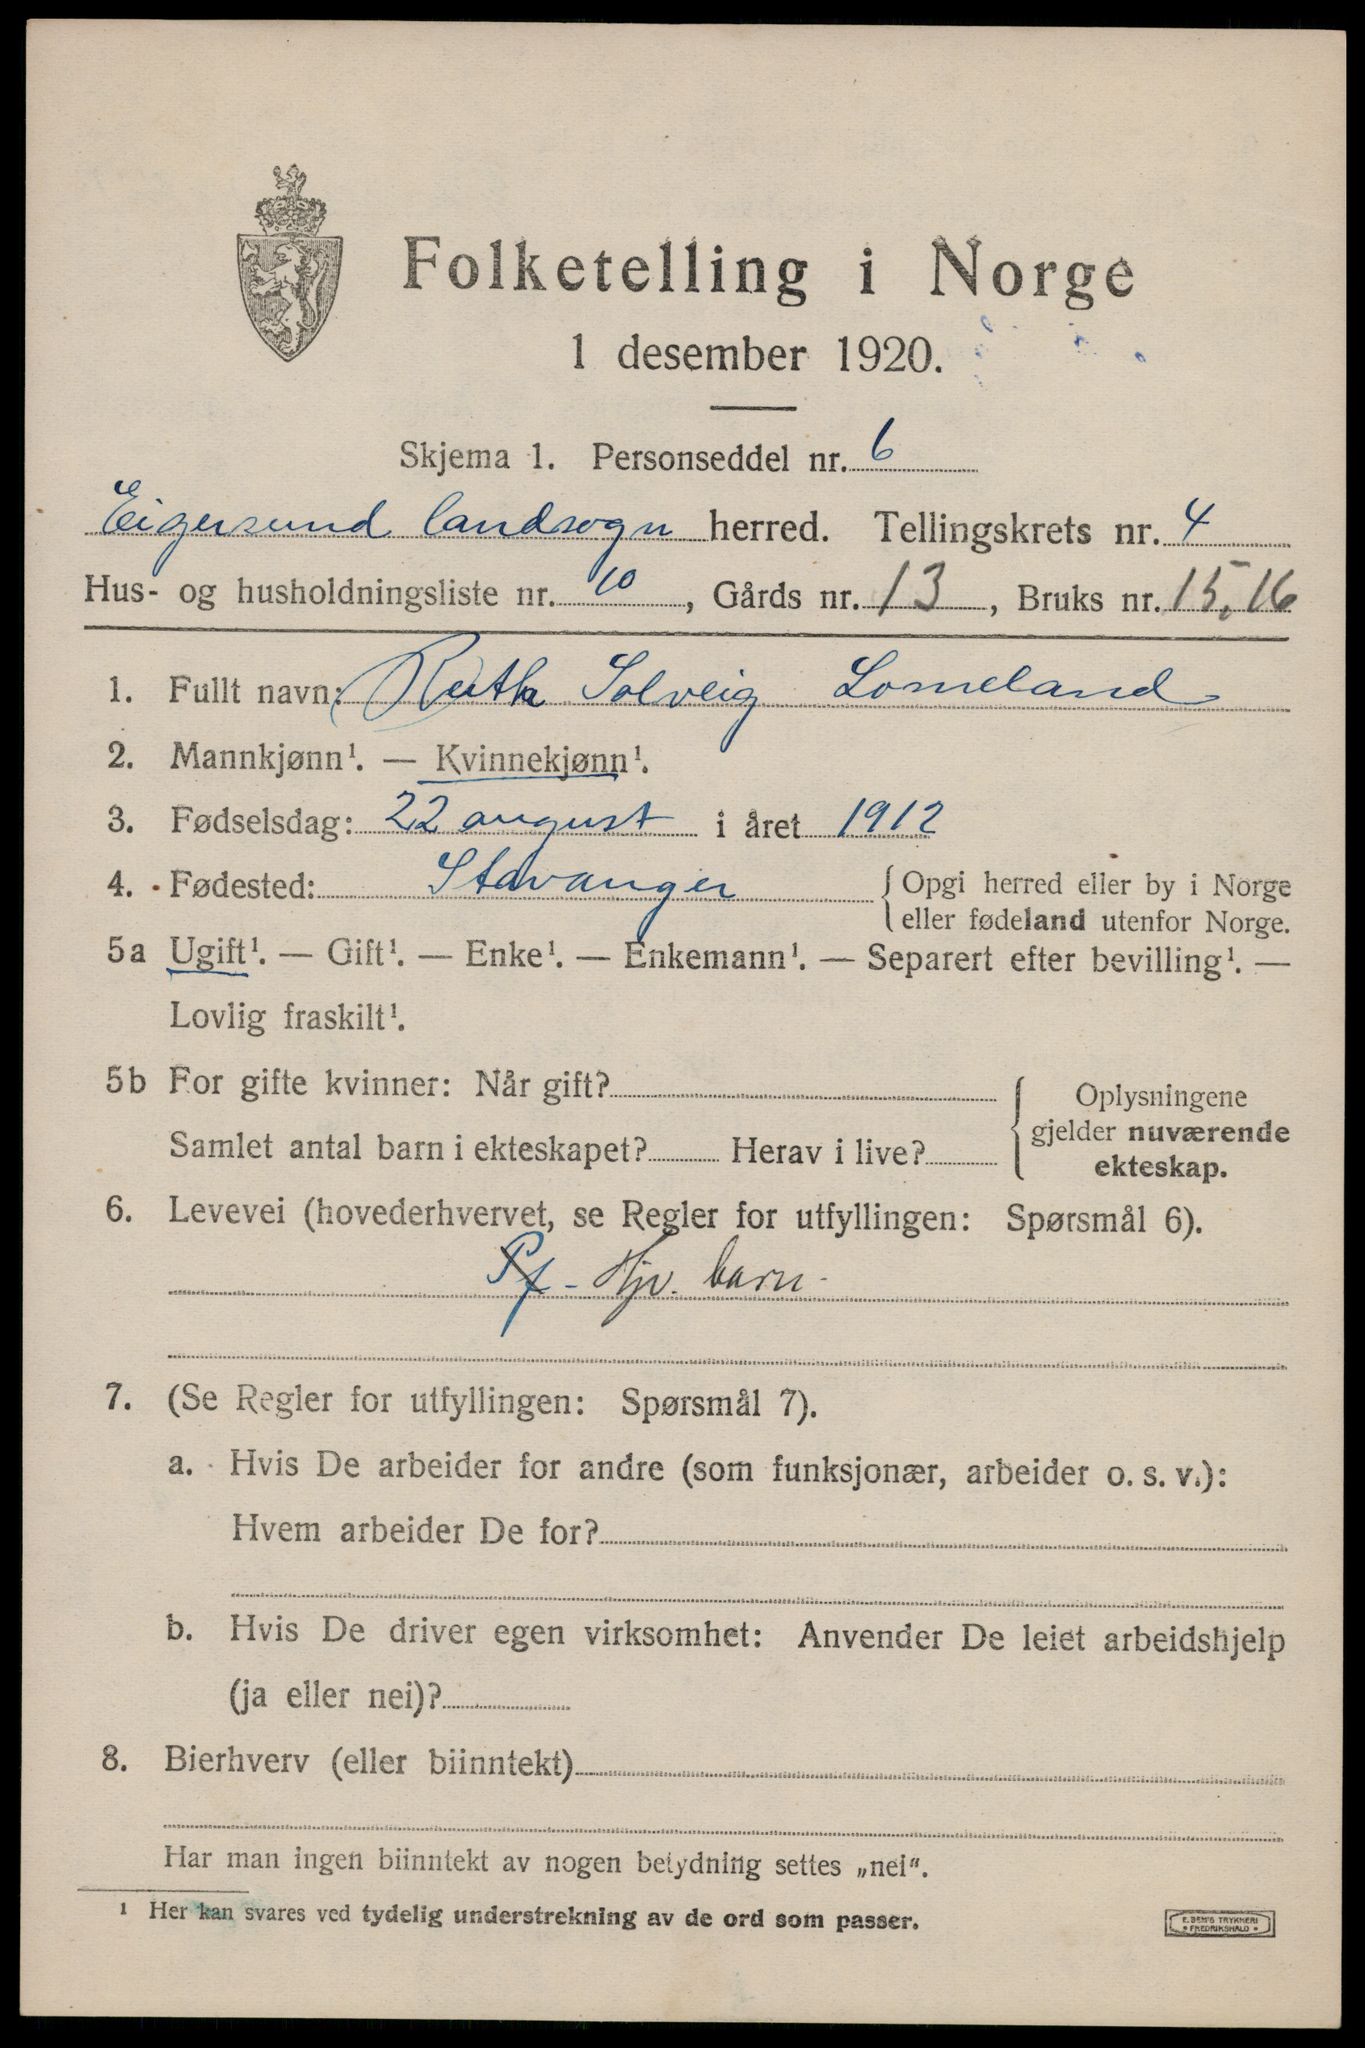 Folketelling i Norge
1 desember 1920.
Skjema 1. Personseddel nr. 6
Eigersund landsogn herred. Tellingskrets nr. 4
Hus- og husholdningsliste nr. 10, Gårds nr. 13, Bruks nr. 15, 16
1. Fullt navn: Ruth Solveig Lomeland
2. Mannkjønn¹. — Kvinnekjønn¹.
3. Fødselsdag: 22 august i året 1912
4. Fødested: Stavanger { Opgi herred eller by i Norge
eller fødeland utenfor Norge.
5a Ugift¹. — Gift¹. — Enke¹. — Enkemann¹. — Separert efter bevilling¹. —
Lovlig fraskilt¹.
5b For gifte kvinner: Når gift? { Oplysningene
Samlet antal barn i ekteskapet? Herav i live? gjelder nuværende
ekteskap.
6. Levevei (hovederhvervet, se Regler for utfyllingen: Spørsmål 6).
Pf - Hjv. barn -
7. (Se Regler for utfyllingen: Spørsmål 7).
a. Hvis De arbeider for andre (som funksjonær, arbeider o. s. v.):
Hvem arbeider De for?
b. Hvis De driver egen virksomhet: Anvender De leiet arbeidshjelp
(ja eller nei)?
8. Bierhverv (eller biinntekt)
Har man ingen biinntekt av nogen betydning settes „nei“.
¹ Her kan svares ved tydelig understrekning av de ord som passer.
E. SEM'S TRYKKERI
• FREDRIKSHALD •